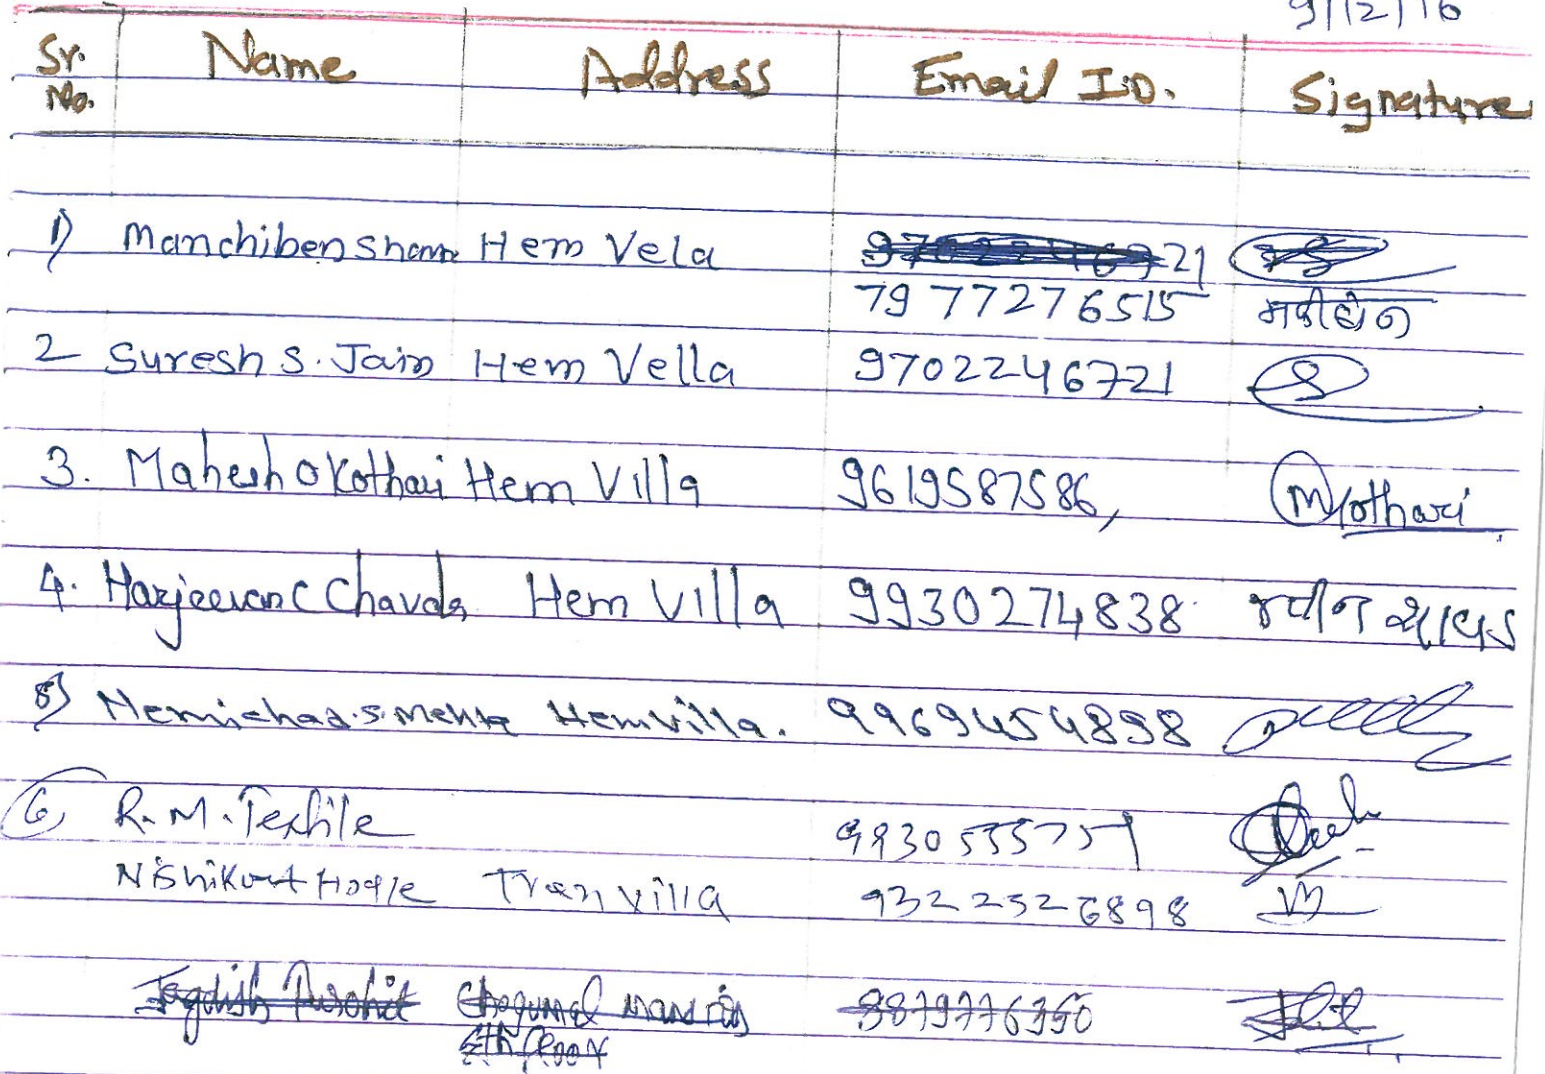 9/12/16
Sr. No. Name Address Email I.D. Signature
1) Manchiben Sham Hem Vela 21
7977276515
2 Suresh S. Jain Hem Vella 9702246721
3. Mahesh O Kothari Hem Villa 9619587586, M Kothari
4. Harjeevan C Chavda Hem Villa 9930274838
5) Nemichad.S.Mehta Hemvilla. 9969454898
6 R.M.Textile
Nishikant Tran villa 9322526898
Jagdish Purohit
4th floor